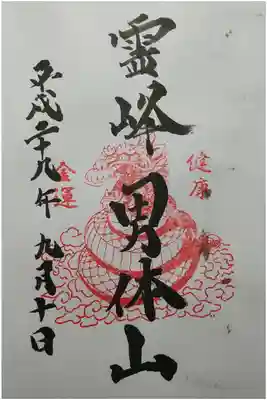 霊峰男体山
健康
金運
平成二十九年九月十日